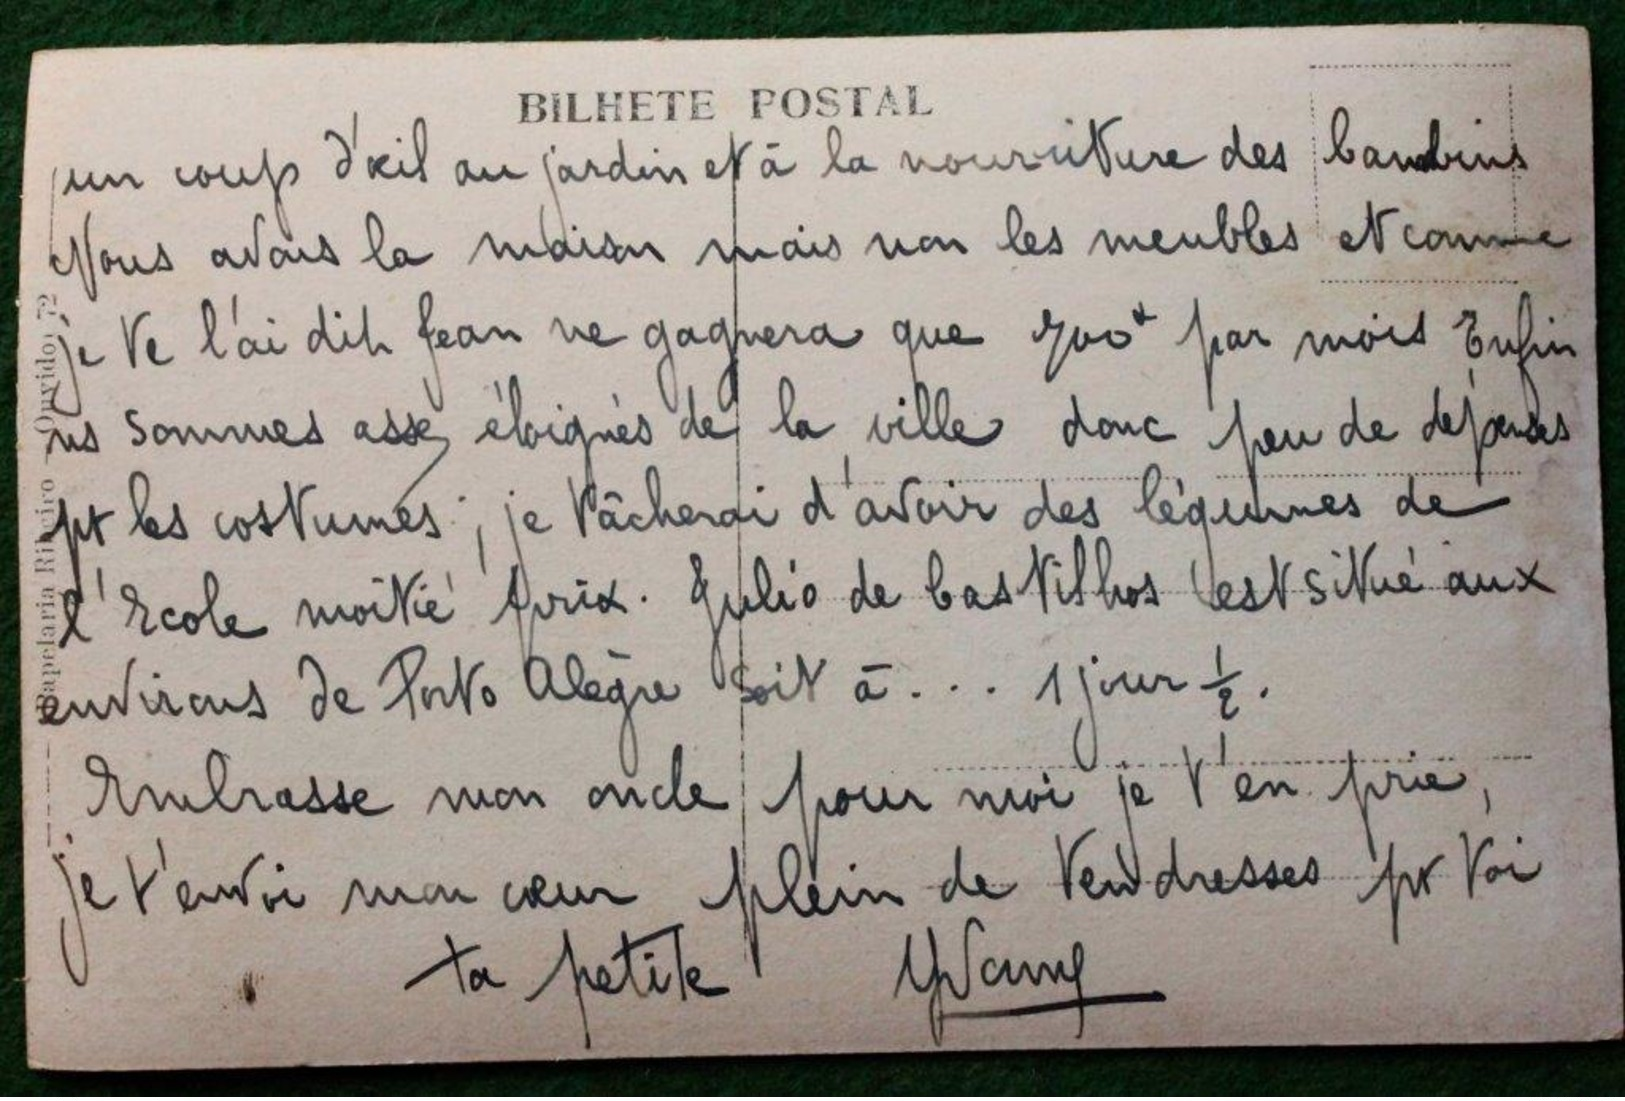 BILHETE POSTAL
un coup d'œil au jardin et à la nourriture des bambins
Nous avons la maison mais non les meubles et comme
je te l'ai dit Jean ne gagnera que par mois Enfin
ns sommes assez éloignés de la ville donc peu de dépenses
pr les costumes ; je tâcherai d'avoir des légumes de
l'Ecole moitié prix. Julio de Castilhos est situé aux
environs de Porto Alègre soit à .... 1 jour 1/2.
Embrasse mon oncle pour moi je t'en prie,
je t'envoi mon cœur plein de tendresses pr toi
ta petite
Papelaria Ribeiro Ouvidor, 72